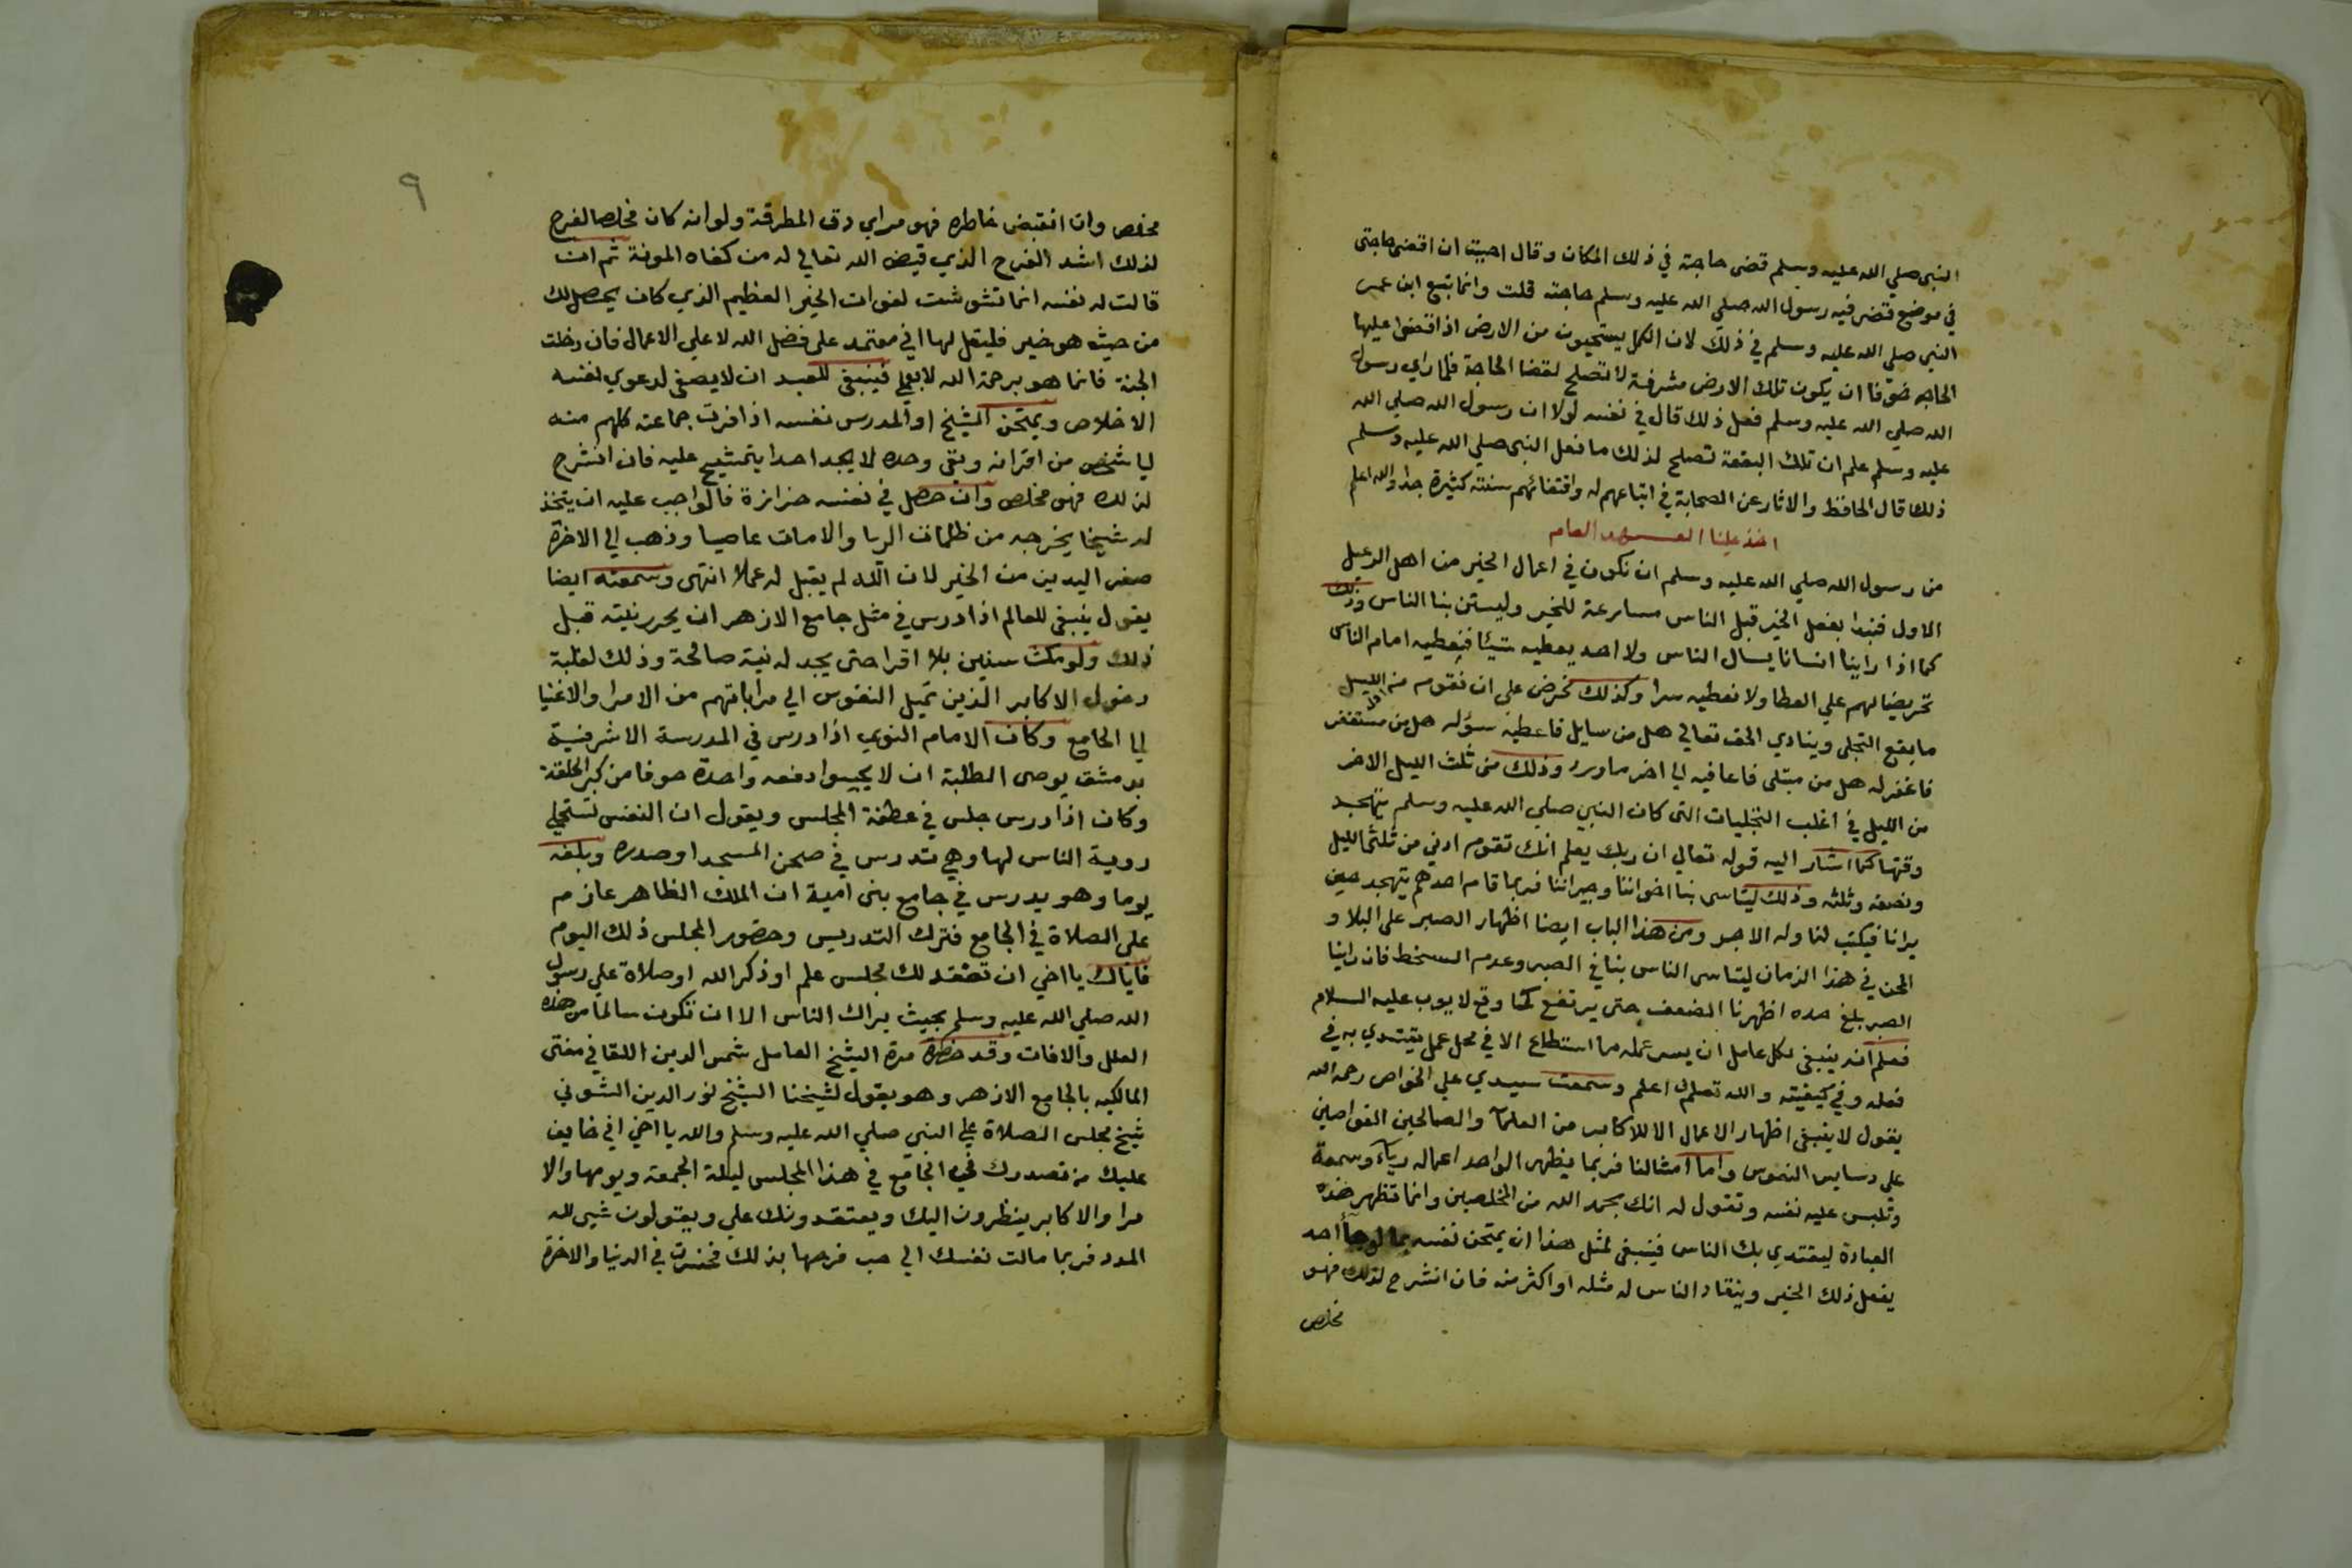 النبي صلي الله عليه وسلم قضي حاجته في ذلك المكان وقال احببت ان اقضي حاجتي
في موضع قضي فيه رسول الله صلي الله عليه وسلم حاجته قلت وانما تبع ابن عمر
النبي صلي الله عليه وسلم في ذلك لان الكمل يستحيون من الارض اذا قضوا عليها
الحاجه خوفا ان يكون تلك الارض مشرفة لا تصلح لقضا الحاجة فلما راي رسول
الله صلي الله عليه وسلم فعل ذلك قال في نفسه لولا ان رسول الله صلي الله
عليه وسلم علم ان تلك البقعة تصلح لذلك ما فعل النبي صلي الله عليه وسلم
ذلك قال الحافظ والاثار عن الصحابة في اتباعهم له واقتفائهم سنته كثيرة جدا والله اعلم
اخذ علينا العهد العام
من رسول الله صلي الله عليه وسلم ان نكون في اعمال الخير من اهل الرعيل
الاول فنبدا بفعل الخير قبل الناس مسارعة للخير وليستن بنا الناس وذلك
كما اذا راينا انسانا يسال الناس ولا احد يعطيه شيئا فنعطيه امام الناس
تحريضا لهم علي العطا ولا نعطيه سرا وكذلك نحرض علي ان نقوم من الليل
ما يقع التجلي وينادي الحق تعالي هل من سايل فاعطيه سؤله هل من مستغفر
فاغفر له هل من مبتلي فاعافيه الي اخر ما ورد وذلك من ثلث الليل الاخر
من الليل في اغلب التجليات التي كان النبي صلي الله عليه وسلم يتهجد
وقتها كما اشار اليه قوله تعالي ان ربك يعلم انك تقوم ادني من ثلثي الليل
ونصفه وثلثه وذلك ليتاسي بنا اخواننا وجيراننا فربما قام احدهم يتهجد حين
يرانا فيكتب لنا وله الاجر ومن هذا الباب ايضا اظهار الصبر علي البلا و
المحن في هذا الزمان ليتاسي الناس بنا في الصبر وعدم السخط فان راينا
الصبر بلغ حده اظهرنا الضعف حتي يرتفع كما وقع لايوب عليه السلام
فعلم انه ينبغي لكل عامل ان يسر عمله ما استطاع الا في محل عمل يقتدي به في
فعله وفي كيفيته والله تعالي اعلم وسمعت سيدي علي الخواص رحمه الله
يقول لا ينبغي اظهار الاعمال الا للاكابر من العلما والصالحين الغواصين
علي دسايس النفوس واما امثالنا فربما يظهر الواحد اعماله رياء وسمعة
وتلبس عليه نفسه وتقول له انك بحمد الله من المخلصين وانما تظهر هذه
العبادة ليقتدي بك الناس فينبغي لمثل هذا ان يمتحن نفسه بما لو جا احد
يفعل ذلك الخير وينقاد الناس له مثله او اكثر منه فان انشرح لذلك فهو
مخلص
٩
مخلص وان انقبض خاطره فهو مراي دق المطرقة ولو انه كان مخلصا لفرح
لذلك اشد الفرح الذي قيض الله تعالي له من كفاه المونة ثم ان
قالت له نفسه انما تشوشت لفوات الخير العظيم الذي كان يحصل لك
من حيث هو خير فليقل لها اني معتمد علي فضل الله لا علي الاعمال فان دخلت
الجنة فانما هو برحمة الله لا بعملي فينبغي للعبد ان لا يصغي لدعوي نفسه
الاخلاص ويمتحن الشيخ او المدرس نفسه اذا فرت جماعته كلهم منه
الي شخص من اقرانه وبقي وحده لا يجد احدا يتمشيخ عليه فان انشرح
لذلك فهو مخلص وان حصل في نفسه حزازة فالواجب عليه ان يتخذ
له شيخا يخرجه من ظلمات الريا والا مات عاصيا وذهب الي الاخرة
صفر اليدين من الخير لان الله لم يقبل له عملا انتهي وسمعته ايضا
يقول ينبغي للعالم اذا درس في مثل جامع الازهر ان يحرر نيته قبل
ذلك ولو مكث سنين بلا اقرا حتي يجد له نية صالحة وذلك لغلبة
دخول الاكابر الذين تميل النفوس الي مراياتهم من الامرا والاغنيا
الي الجامع وكان الامام النووي اذا درس في المدرسة الاشرفية
بدمشق يوصي الطلبة ان لا يجيبوا دفعه واحدة خوفا من كبر الحلقة
وكان اذا درس جلس في عطفة المجلس ويقول ان النفس تستحلي
روية الناس لها وهي تدرس في صحن المسجد او صدره وبلغه
يوما وهو يدرس في جامع بني امية ان الملك الظاهر عازم
علي الصلاة في الجامع فترك التدريس وحضور المجلس ذلك اليوم
فاياك يا اخي ان تعقد لك مجلس علم او ذكر الله او صلاة علي رسول
الله صلي الله عليه وسلم بحيث يراك الناس الا ان تكون سالما من هذه
العلل والافات وقد حضرة مرة الشيخ العامل شمس الدين اللقاني مفتي
المالكيه بالجامع الازهر وهو يقول لشيخنا الشيخ نور الدين الشوني
شيخ مجلس الصلاة علي النبي صلي الله عليه وسلم والله يا اخي اني خايف
عليك من تصدرك في الجامع في هذا المجلس ليلة الجمعة ويومها والا
مرا والاكابر ينظرون اليك ويعتقدونك علي ويقولون شيي لله
المدد فربما مالت نفسك الي حب فرحها بذلك فخسرت في الدنيا والاخرة